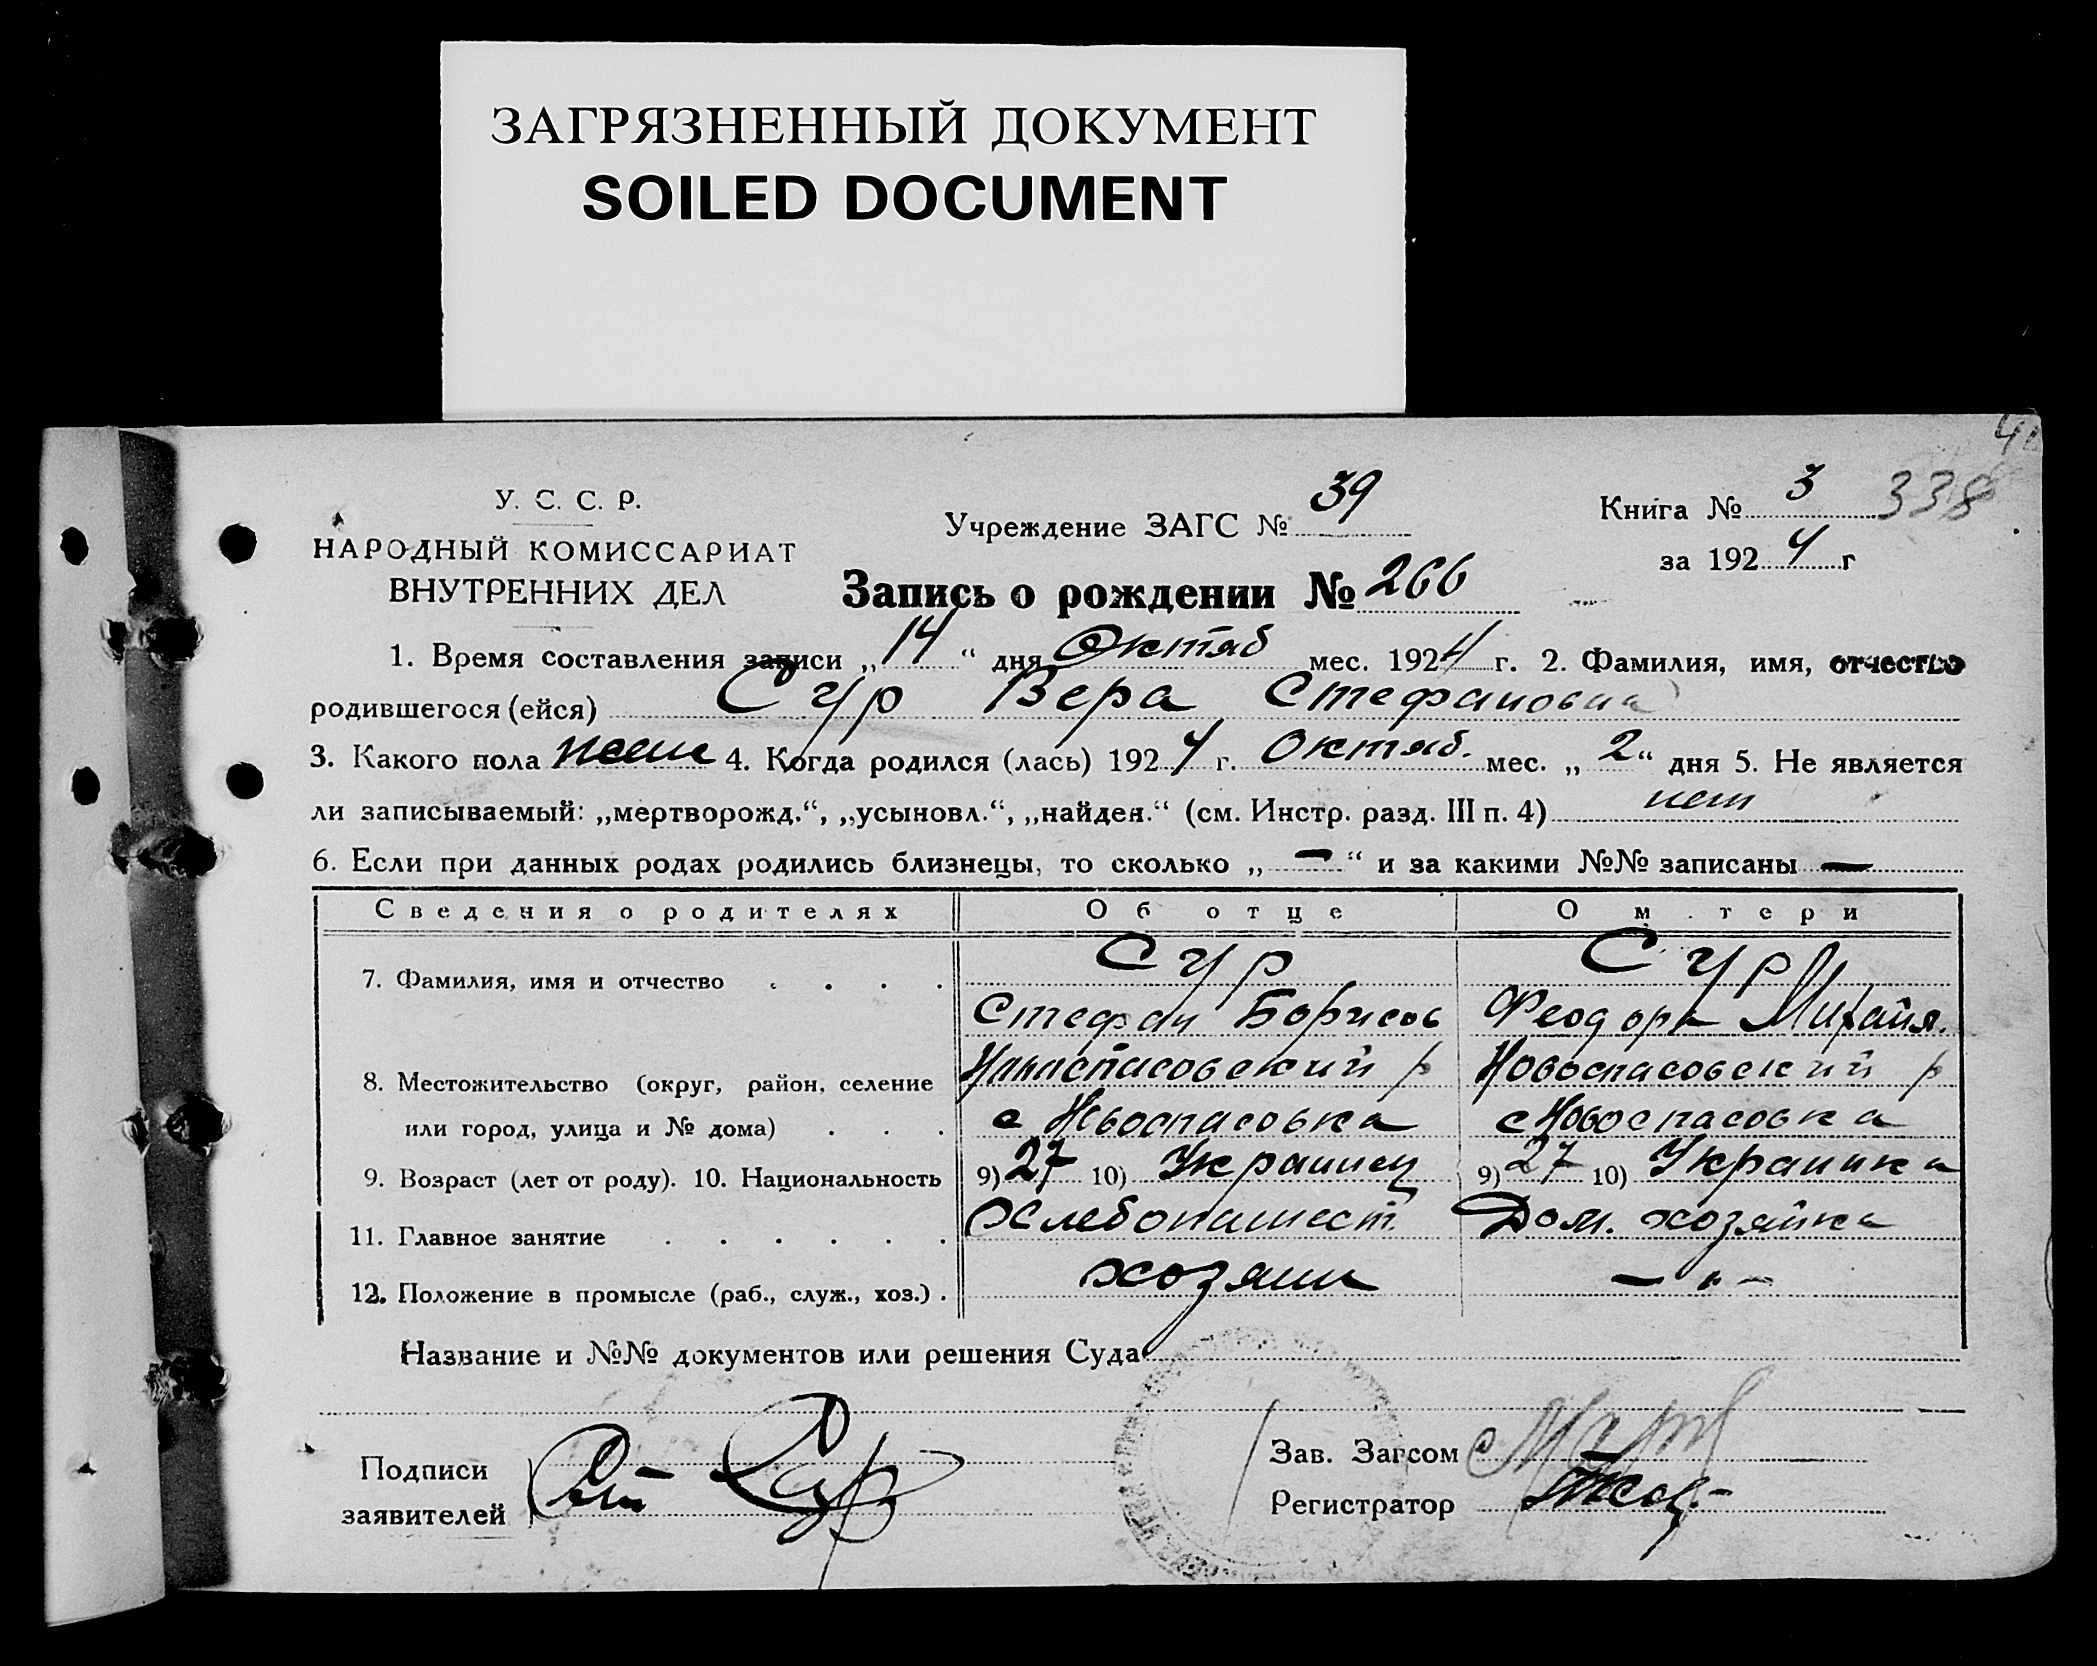 ЗАГРЯЗНЕННЫЙ ДОКУМЕНТ
SOILED DOCUMENT
У. С. С. Р.
НАРОДНЫЙ КОМИССАРИАТ
ВНУТРЕННИХ ДЕЛ
Учреждение ЗАГС № 39
Книга № 3 338
за 1924 г
Запись о рождении № 266
1. Время составления записи „14“ дня Октяб мес. 1924 г. 2. Фамилия, имя, отчество
родившегося (ейся) Сур Вера Стефановна
3. Какого пола жен 4. Когда родился (лась) 1924 г. Октяб. мес. „2“ дня 5. Не является
ли записываемый: „мертворожд.“, „усыновл.“, „найден.“ (см. Инстр. разд. III п. 4) нет
6. Если при данных родах родились близнецы, то сколько „ — “ и за какими №№ записаны —
Сведения о родителях Об отце О м.тери
7. Фамилия, имя и отчество Сур Сур
Стефан Борисов Феодора Михайл.
8. Местожительство (округ, район, селение Новоспасовский р Новоспасовский р
или город, улица и № дома) с Новоспасовка с Новоспасовка
9. Возраст (лет от роду). 10. Национальность 9) 27 10) Украинец 9) 27 10) Украинка
11. Главное занятие Хлебопашест. Дом. хозяйка
12. Положение в промысле (раб., служ., хоз.) хозяин — " —
Название и №№ документов или решения Суда
Подписи
заявителей Сур
Зав. Загсом
Регистратор